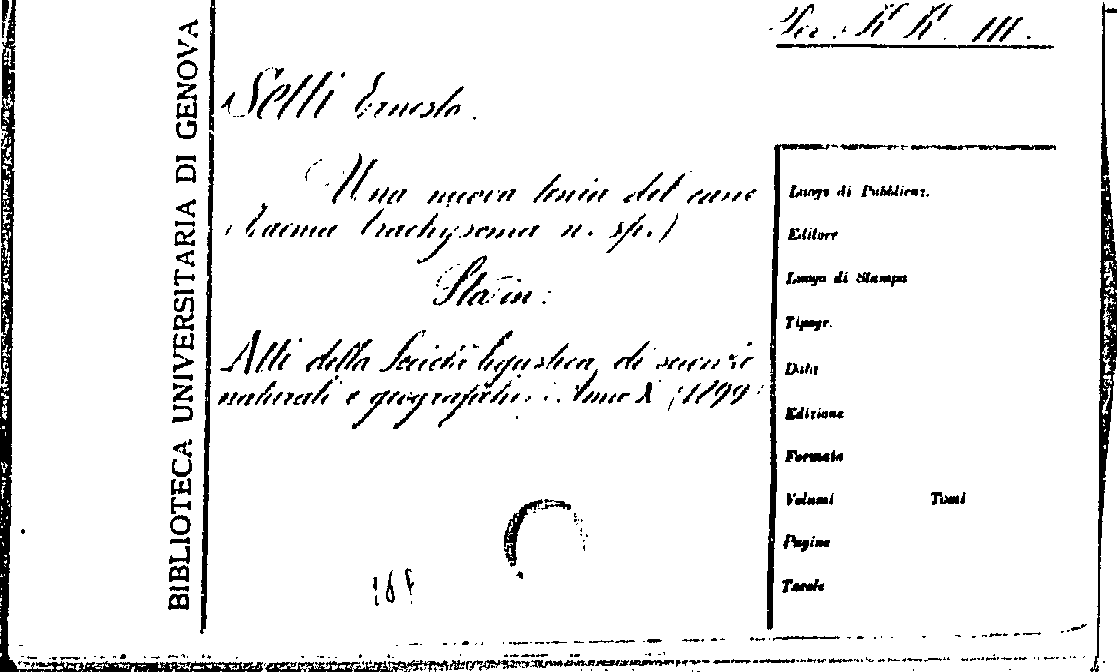 BIBLIOTECA UNIVERSITARIA DI GENOVA
Per. K K. III.
Setti Ernesto.
Una nuova tenia del cane
(Taenia brachysoma n. sp.)
Sta in:
Atti della Società ligustica di scienze
naturali e geografiche. Anno X (1899)
Luogo di Pubblicaz.
Editore
Luogo di Stampa
Tipogr.
Data
Edizione
Formato
Volumi Tomi
Pagine
Tavole